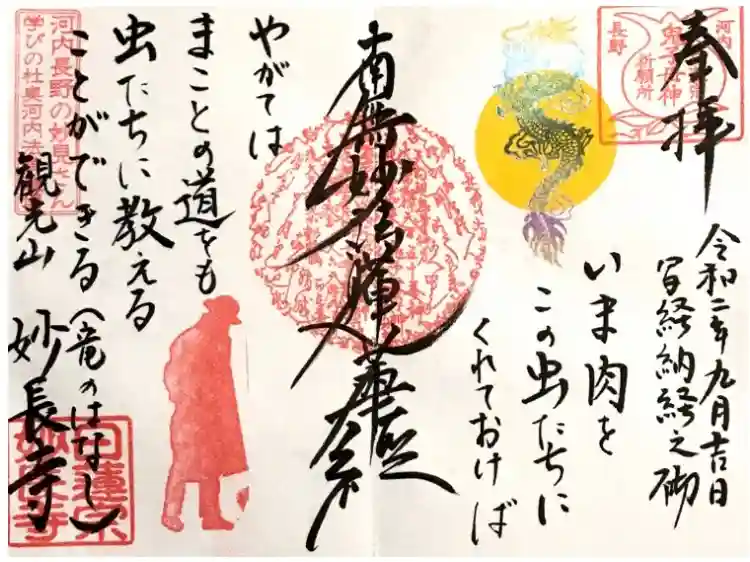 奉拝
河内
長野
鬼子母神
祈願所
令和二年九月吉日
写経納経之砌
いま肉を
この虫たちに
くれておけば
南無妙
やがては
まことの道をも
虫たちに教える
ことができる(竜のはなし)
観光山 妙長寺
河内長野の妙見さん
学びの杜奥河内
日蓮宗
妙長寺